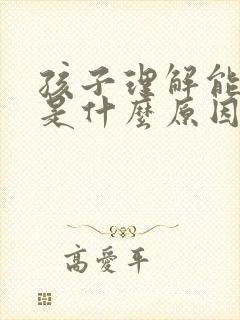 孩子理解能
是什麼原因
高愛平